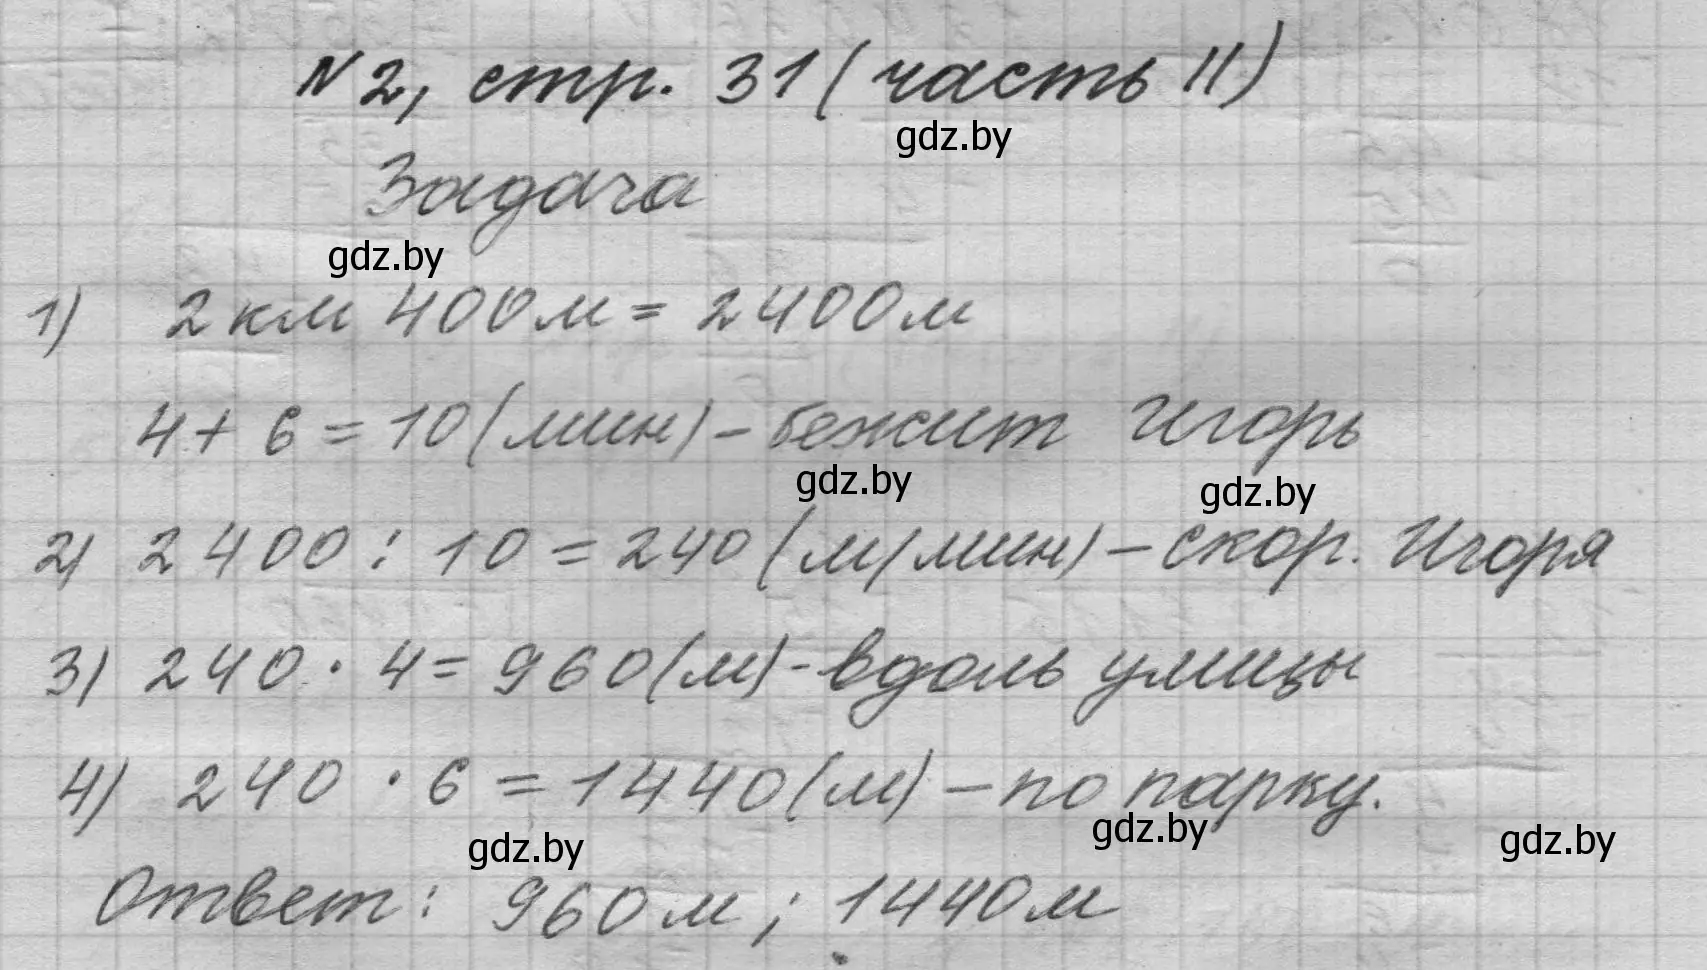 N2, стр. 31 (часть II)
gdz.by
Задача
gdz.by
1) 2 км 400 м = 2400 м
4 + 6 = 10 (мин) – бежит Игорь
gdz.by
gdz.by
2) 2400 : 10 = 240 (м/мин) – скор. Игоря
3) 240 · 4 = 960 (м) - вдоль улицы
4) 240 · 6 = 1440 (м) – по парку.
gdz.by
gdz.by
gdz.by
Ответ: 960 м; 1440 м